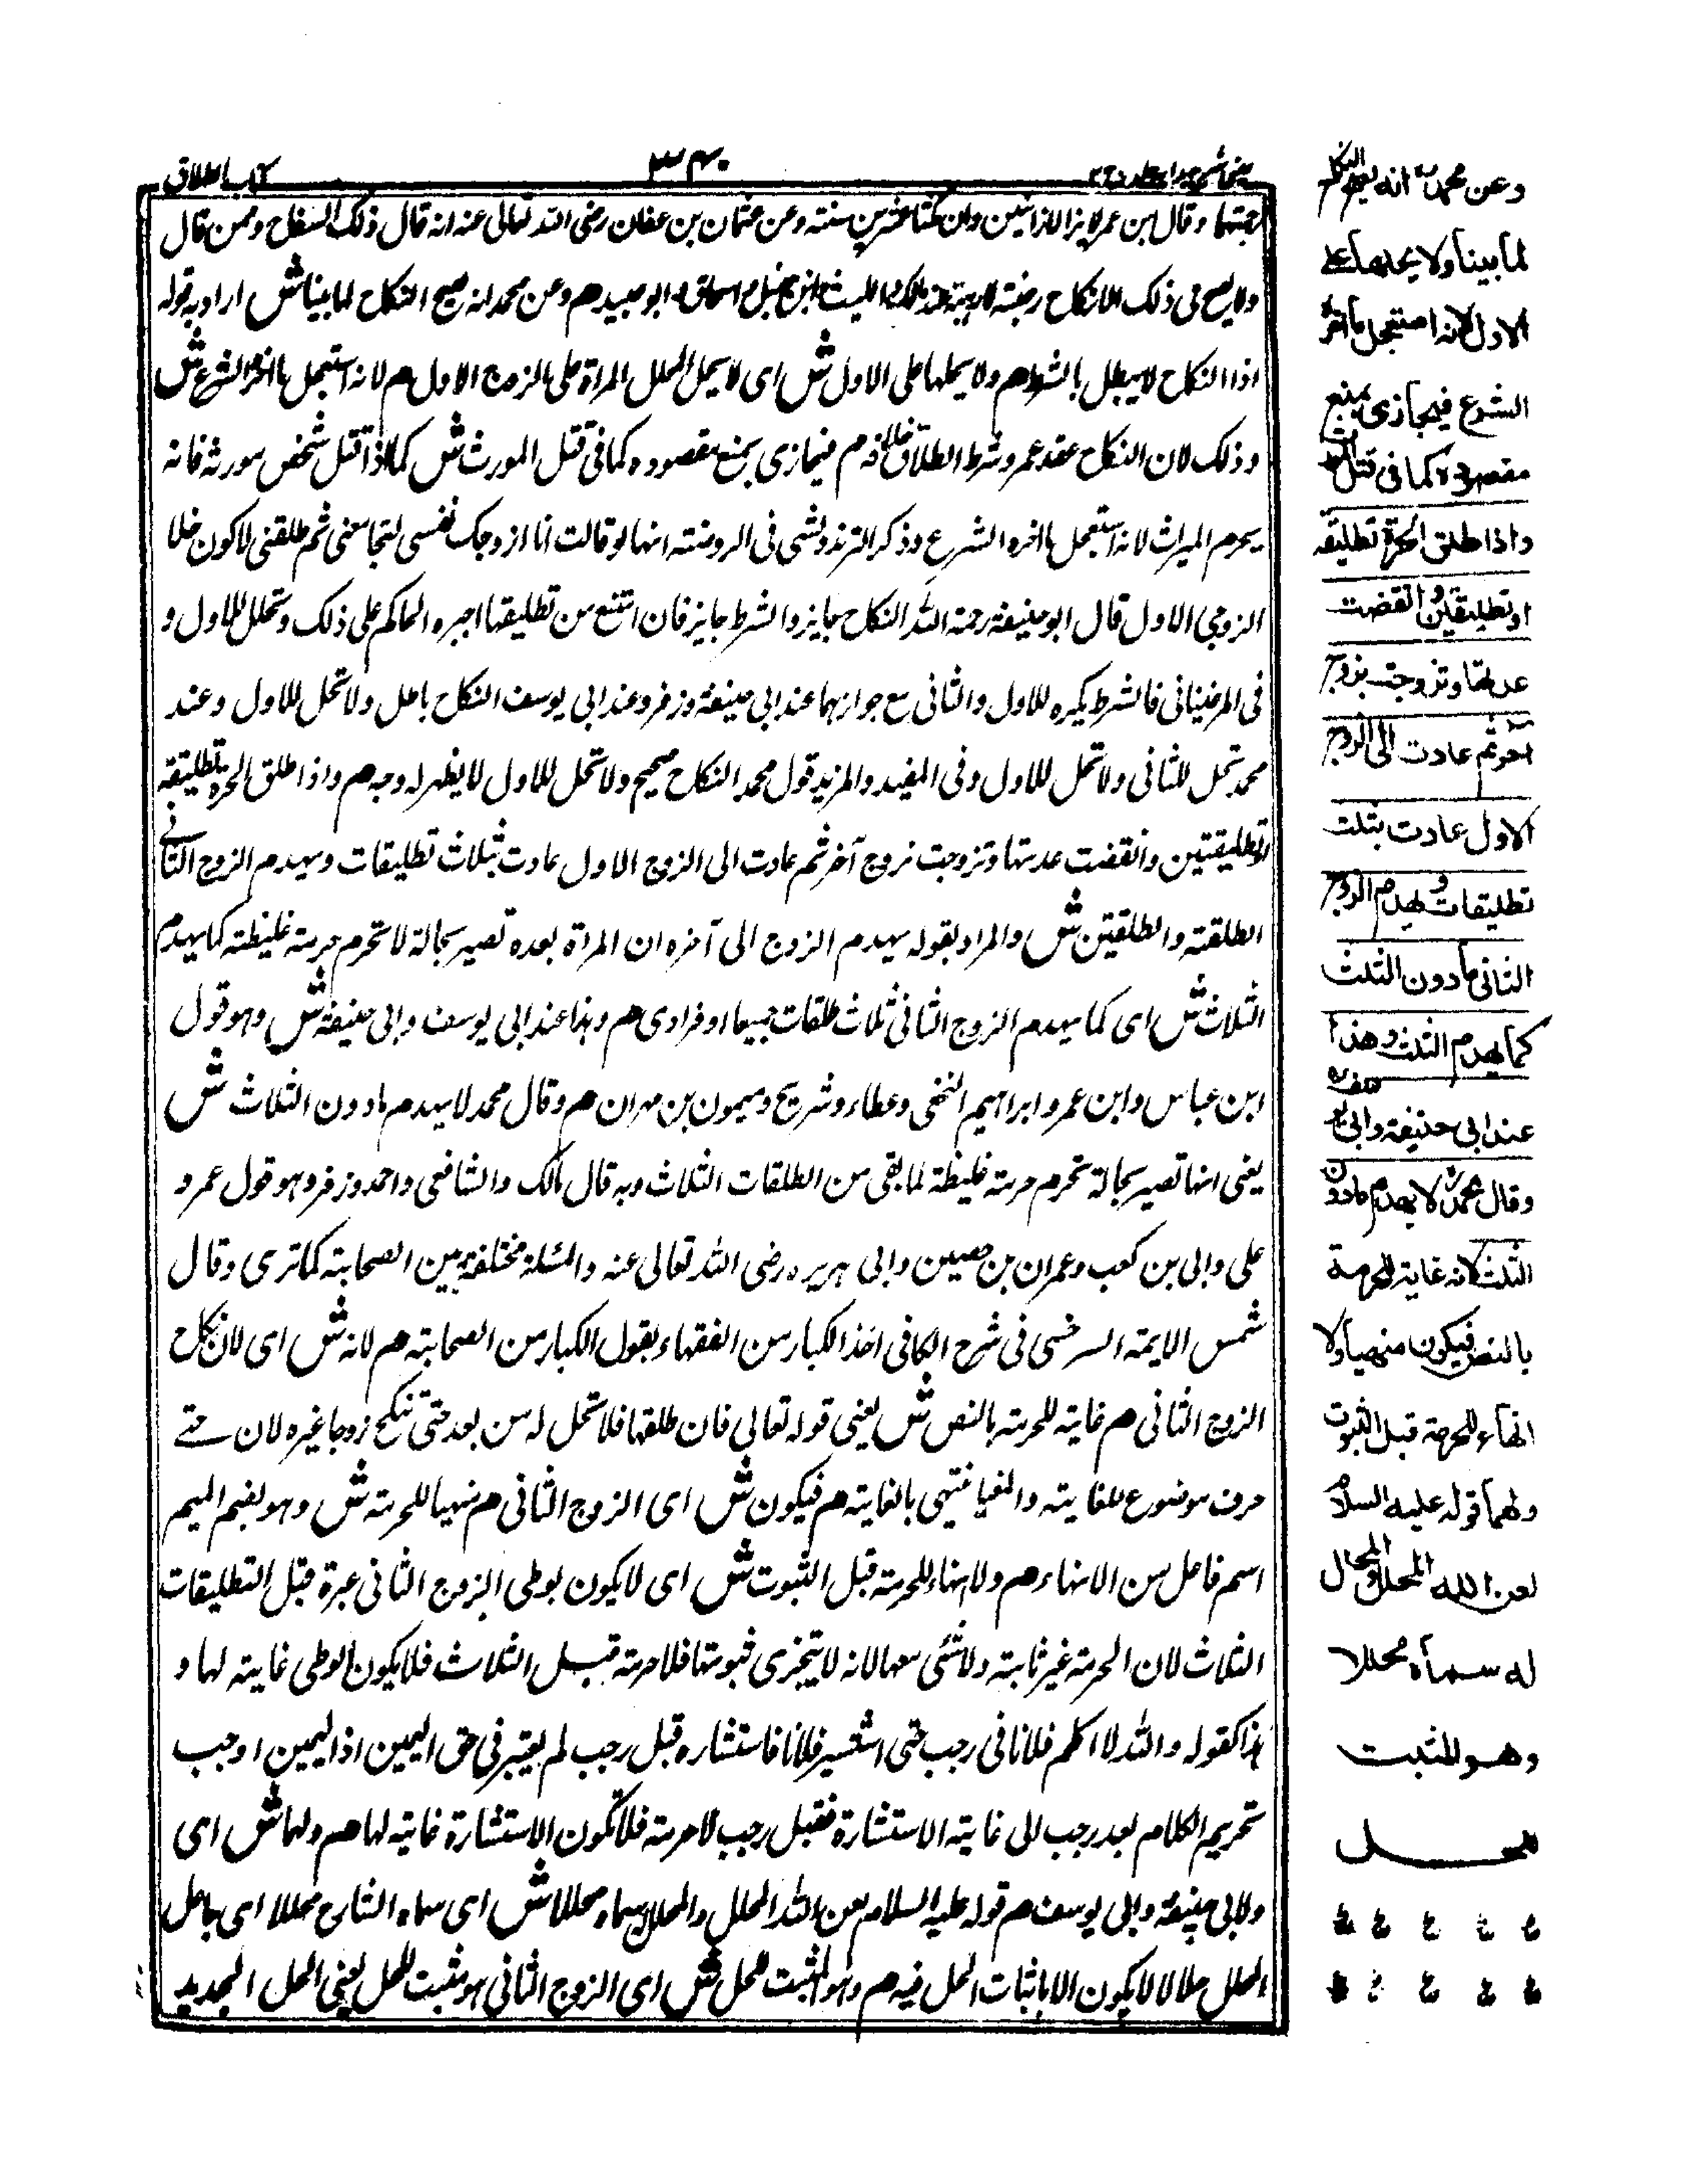 كتاب الطلاق
٣٤٠
وقال ابن عمر لا يزالان زانيين وان مكثا عشرين سنته وعن عثمان بن عفان رضى الله تعالى عنه انه قال ذلك السفاح وممن قال
ولا يصح فى ذلك الا نكاح رغبته وابن حنبل واسحاق وابو عبيد هم وعن محمد انه صح النكاح لما بينا ش اراد به قوله
اذا النكاح لا يبطل بالشرط هم ولا يحلها على الاول ش اى لا يحل المحلل المراة على الزوج الاول هم لانه استعجل ما اخره الشرع ش
وذلك لان النكاح عقد عمر وشرط الطلاق هم فيجازى بمنع مقصوده كما فى قتل المورث ش كما اذا قتل شخص مورثه فانه
يحرم الميراث لانه استعجل ما اخره الشرع وذكر الترندوبشى فى الروضته انها لو قالت انا ازوجك نفسى لتجامعنى ثم طلقنى لاكون حلا
الزوجى الاول قال ابو حنيفه رحمة الله النكاح جايز والشرط جايز فان امتنع من تطليقها اجبره الحاكم على ذلك وتحلل للاول و
فى المرغينانى فالشرط يكره للاول والثانى مع جوازهما عند ابى حنيفة وزفر وعند ابى يوسف النكاح باطل ولا تحل للاول وعند
محمد تحل للثانى ولا تحل للاول وفى المفيد والمزيد قول محمد النكاح صحيح ولا تحل للاول لا يظهر له وجه هم واذا طلق الحرة تطليقه
او تطليقتين وانقضت عدتها وتزوجت بزوج آخر ثم عادت الى الزوج الاول عادت بثلاث تطليقات ويهدم الزوج الثانے
الطلقته والطلقتين ش والمراد بقوله يهدم الزوج الى آخره ان المراة بعده تصير بحالة لا تحرم حرمته غليظته كما يهدم
الثلاث ش اى كما يهدم الزوج الثانى ثلاث طلقات جميعا او فرادى هم وهذا عند ابى يوسف وابى حنيفة ش وهو قول
ابن عباس وابن عمر وابراهيم النخعى وعطاء وشريح وميمون بن مهران هم وقال محمد لا يهدم مادون الثلاث ش
يعنى انها تصير بحالة تحرم حرمته غليظة لما بقى من الطلقات الثلاث وبه قال مالك والشافعى واحمد وزفر وهو قول عمر و
على وابى بن كعب وعمران بن حصين وابى هريره رضى الله تعالى عنه والمسئلة مختلفة بين الصحابته كما ترى وقال
شمس الايمته السرخسى فى شرح الكافى اخذ الكبار من الفقهاء بقول الكبار من الصحابته هم لانه ش اى لان نكاح
الزوج الثانى هم غايته للحرمته بالنص ش يعنى قوله تعالى فان طلقها فلا تحل له من بعد حتى تنكح زوجا غيره لان حتے
حرف موضوع للغايته والمغيا ينتهى بالغايته هم فيكون ش اى الزوج الثانى هم منهيا للحرمته ش وهو بضم الميم
اسم فاعل من الانهاء هم ولا انهاء للحرمته قبل الثبوت ش اى لا يكون بوطى الزوج الثانى عبرة قبل التطليقات
الثلاث لان الحرمته غير ثابته ولا شئى معها لانه لا يتجزى ثبوتها فلا حرمته قبل الثلاث فلا يكون الوطى غايته لها و
هذا كقوله والله لا اكلم فلانا فى رجب حتى استشير فلانا فاستشاره قبل رجب لم يعتبر فى حق اليمين اذ اليمين اوجب
تحريم الكلام بعد رجب الى غايته الاستشارة فقبل رجب لا حرمته فلا تكون الاستشارة غايته لها هم ولهما ش اى
ولابى حنيفة وابى يوسف هم قوله عليه السلام لعن الله المحلل والمحلل له سماه محللا ش اى سماه الشارع محللا اى جاعل
المحلل حلالا لا يكون الا باثبات الحل فيه هم وهو المثبت للحل ش اى الزوج الثانى هو مثبت للحل يعنى الحل الجديد
وعن محمد انه يصح النكاح
لما بينا ولا يحلها على
الاول لانه استعجل ما اخره
الشرع فيجازى بمنع
مقصوده كما فى قتل المورث
واذا طلق الحرة تطليقه
او تطليقتين وانقضت
عدتها وتزوجت بزوج
آخر ثم عادت الى الزوج
الاول عادت بثلث
تطليقات ويهدم الزوج
الثانى مادون الثلث
كما يهدم الثلث وهذا
عند ابى حنيفة وابى يوسف
وقال محمد لا يهدم مادون
الثلث لانه غاية للحرمة
بالنص فيكون منهيا ولا
انهاء للحرمة قبل الثبوت
ولهما قوله عليه السلام
لعن الله المحلل والمحلل
له سماه محللا
وهو المثبت
للحل